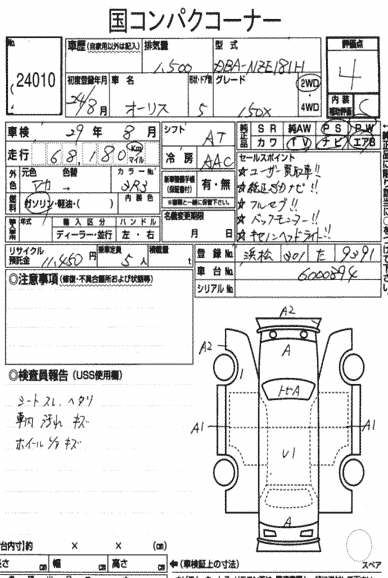 国コンパクコーナー
No. 24010
車歴 (自家用以外は記入) 排気量 型式 評価点
1,500 DBA-NZE181H 4
初度登録年月 車名 形状・ドア数 グレード 2WD ・ 4WD
24/8月 オーリス 5 150X
内装 補助評価 C
車検 29年 8月 シフト AT
純正品 SR 純AW PS PW
カワ TV ナビ エアB
走行 68,180 Km マイル 冷房 AAC
セールスポイント
外色 元色 色替 カラーNo.
★ユーザー買取車!!
★純正ナビ!!
有・無
燃料 ガソリン・軽油・( ) 内装色
★フルセグ!!
名義変更期限
★バックモニター!!
輸入区分 ハンドル
ディーラー・並行 左・右 月 日
★キセノンヘッドライト!!
リサイクル預託金 11,450円 乗車定員 5人 積載量 t
登録No. 浜松 301 た 9391
車台No. 6000894
シリアルNo.
◎注意事項 (修復・不具合箇所および状態等)
◎検査員報告 (USS使用欄)
シートスレ、ヘタリ
車内 汚れ キズ
ホイール1/3 キズ
A2 A A2 1
トビA
A1 U1 A1
A
台内寸)約 × × (cm)
長さ cm 幅 cm 高さ cm ←(車検証上の寸法)
スペア